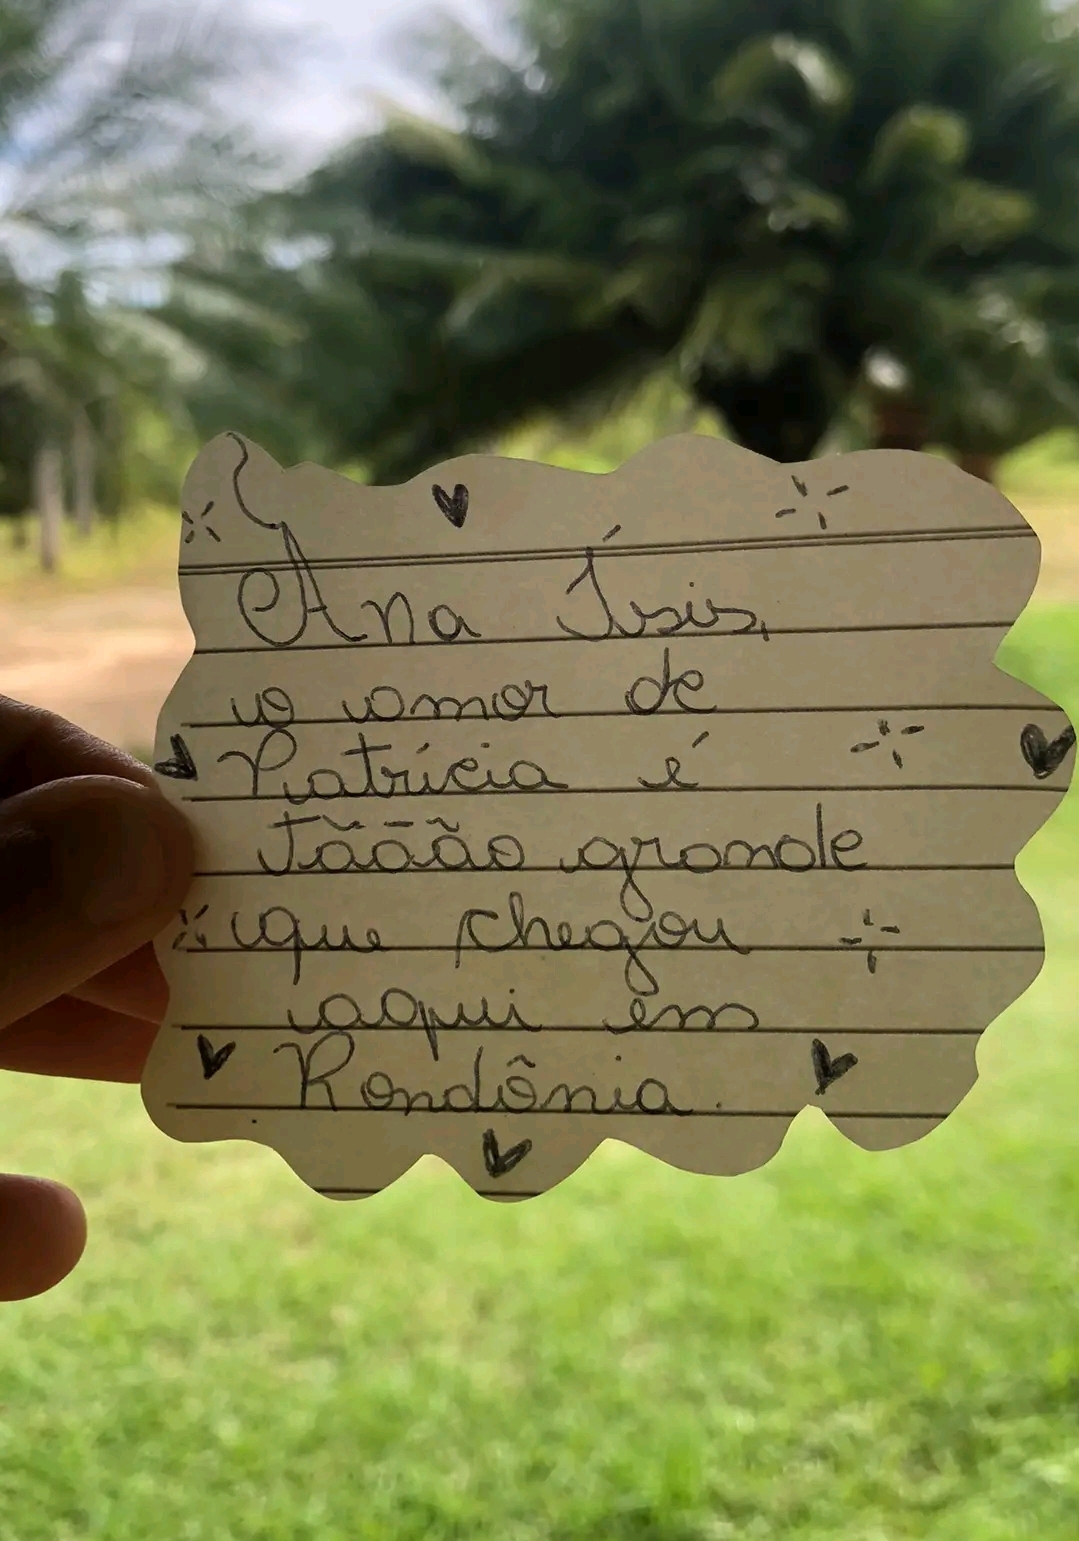 Ana Ísis,
o amor de
Patrícia é
Tãããão grande
que chegou
aqui em
Rondônia.